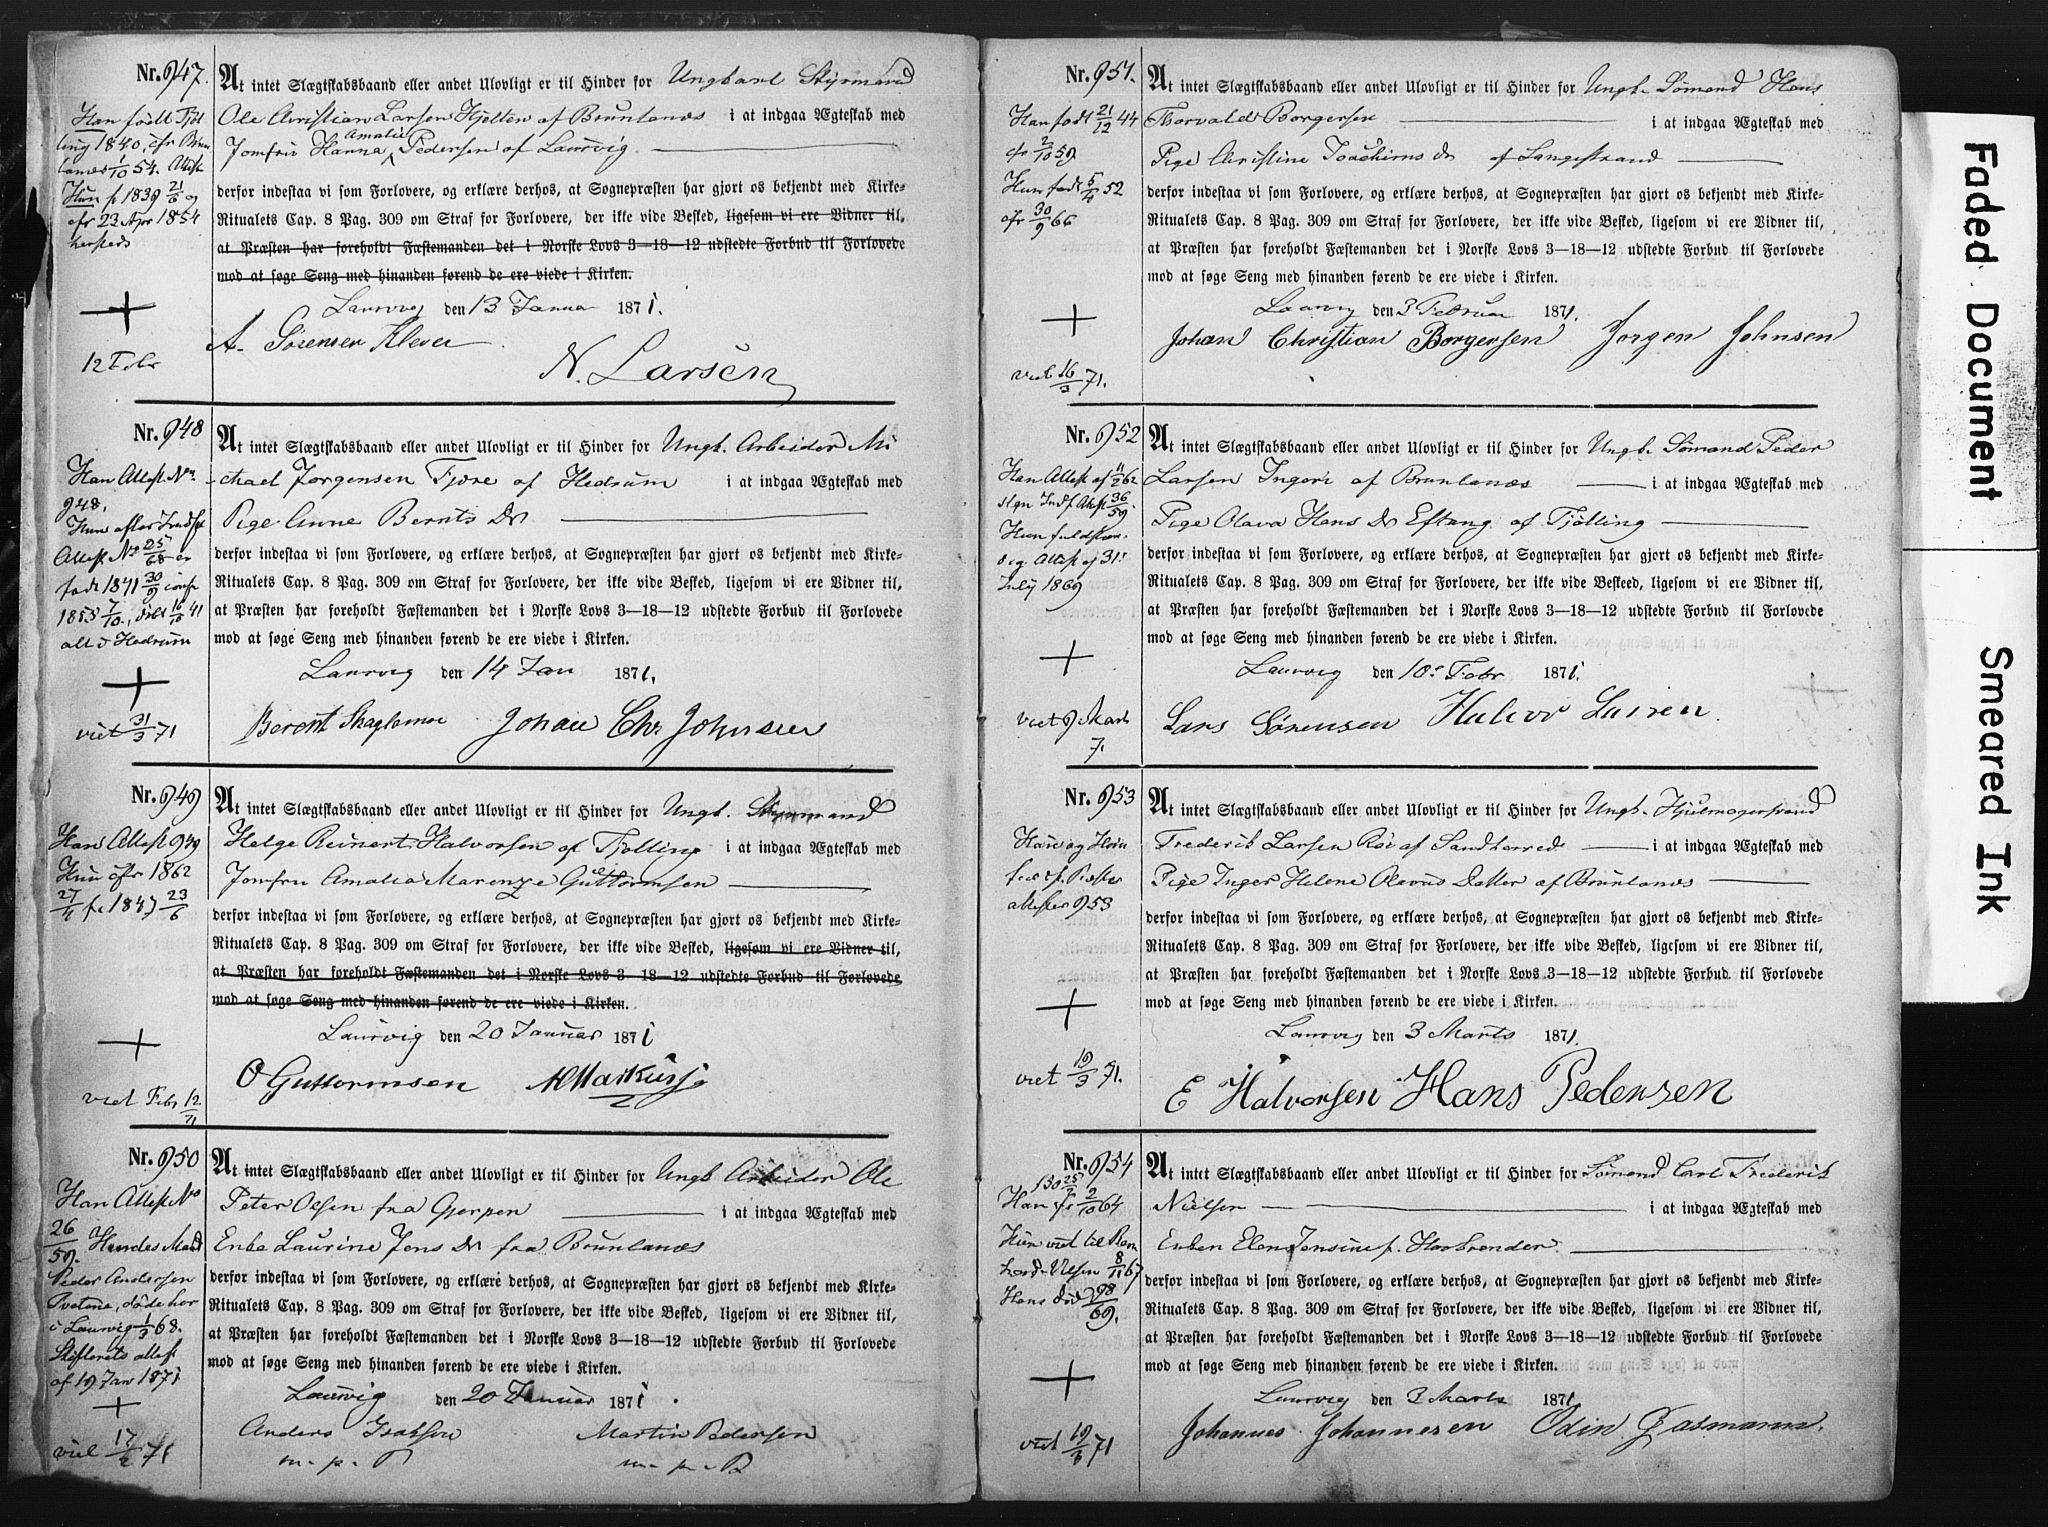 Nr. 947.
At intet Slægtskabsbaand eller andet Ulovligt er til Hinder for Ungkarl Styrmand
Ole Christian Larsen Hjelten af Brunlanæs i at indgaa Ægteskab med
Jomfru Hanna Amalie Pedersen af Laurvig
derfor indestaa vi som Forlovere, og erklære derhos, at Sognepræsten har gjort os bekjendt med Kirke-
Ritualets Cap. 8 Pag. 309 om Straf for Forlovere, der ikke vide Besked, ligesom vi ere Vidner til,
at Præsten har foreholdt Fæstemanden det i Norske Lovs 3—18—12 udstedte Forbud til Forlovede
mod at søge Seng med hinanden førend de ere viede i Kirken.
Laurvig den 13 Januar 1871.
A. Sørensen Klever
N. Larsen
Han født Tjøl
ling 1840, cfr Brun
lanæs 1/10 54. Attest
Hun f 1839 21/6 og
cfr 23 Apr 1854
12 Febr
Nr. 948
At intet Slægtskabsbaand eller andet Ulovligt er til Hinder for Ungk. Arbeider Mi
chael Jørgensen Tjøse af Hedrum i at indgaa Ægteskab med
Pige Anne Bernts Dr
derfor indestaa vi som Forlovere, og erklære derhos, at Sognepræsten har gjort os bekjendt med Kirke-
Ritualets Cap. 8 Pag. 309 om Straf for Forlovere, der ikke vide Besked, ligesom vi ere Vidner til,
at Præsten har foreholdt Fæstemanden det i Norske Lovs 3—18—12 udstedte Forbud til Forlovede
mod at søge Seng med hinanden førend de ere viede i Kirken.
Laurvig den 14 Jan 1871.
Berent Skaglemoe Johan Chr. Johnsen
Han Attest No
948.
Hun efter Indf
Attest No 25/68 er
født 1841 30/9 conf
1853 7/10, døbt 16/10 41
alt i Hedrum
viet 31/3 71
Nr. 949
At intet Slægtskabsbaand eller andet Ulovligt er til Hinder for Ungk. Styrmand
Helge Reinert Halvorsen af Tjølling i at indgaa Ægteskab med
Jomfru Amalia Marenze Guttormsen
derfor indestaa vi som Forlovere, og erklære derhos, at Sognepræsten har gjort os bekjendt med Kirke-
Ritualets Cap. 8 Pag. 309 om Straf for Forlovere, der ikke vide Besked, ligesom vi ere Vidner til,
at Præsten har foreholdt Fæstemanden det i Norske Lovs 3—18—12 udstedte Forbud til Forlovede
mod at søge Seng med hinanden førend de ere viede i Kirken.
Laurvig den 20 Januar 1871
O Guttormsen
Hans Attest 949
Hun cfr 1862
27/4 f. 1847 23/6
viet Febr 12/71
Nr. 950
At intet Slægtskabsbaand eller andet Ulovligt er til Hinder for Ungk Arbeider Ole
Peter Olsen fra Gjerpen i at indgaa Ægteskab med
Enke Laurine Jens Dr fra Brunlanæs
derfor indestaa vi som Forlovere, og erklære derhos, at Sognepræsten har gjort os bekjendt med Kirke-
Ritualets Cap. 8 Pag. 309 om Straf for Forlovere, der ikke vide Besked, ligesom vi ere Vidner til,
at Præsten har foreholdt Fæstemanden det i Norske Lovs 3—18—12 udstedte Forbud til Forlovede
mod at søge Seng med hinanden førend de ere viede i Kirken.
Laurvig den 20 Januar 1871.
Anders Isaksen Martin Pedersen
m. p. P m. p. P
Han Attest No
26/59. Hendes Mand
Peder Andersen
døde her
i Laurvig 1/3 68.
Skifterets attest
af 19 Jan 1871
viet 17/2 71
Nr. 951.
At intet Slægtskabsbaand eller andet Ulovligt er til Hinder for Ungk. Sømand Hans
Thorvald Borgersen i at indgaa Ægteskab med
Pige Christine Joachims Dr af Langestrand
derfor indestaa vi som Forlovere, og erklære derhos, at Sognepræsten har gjort os bekjendt med Kirke-
Ritualets Cap. 8 Pag. 309 om Straf for Forlovere, der ikke vide Besked, ligesom vi ere Vidner til,
at Præsten har foreholdt Fæstemanden det i Norske Lovs 3—18—12 udstedte Forbud til Forlovede
mod at søge Seng med hinanden førend de ere viede i Kirken.
Laurvig den 3 Februar 1871.
Johan Christian Borgersen Jørgen Johnsen
Han født 21/12 44
cfr 2/10 59
Hun født 5/4 52
cfr 30/9 66
viet 16/3 71.
Nr. 952
At intet Slægtskabsbaand eller andet Ulovligt er til Hinder for Ungk. Sømand Peder
Larsen af Brunlanæs i at indgaa Ægteskab med
Pige Olava Hans Dr Eftang af Tjølling
derfor indestaa vi som Forlovere, og erklære derhos, at Sognepræsten har gjort os bekjendt med Kirke-
Ritualets Cap. 8 Pag. 309 om Straf for Forlovere, der ikke vide Beskeed, ligesom vi ere Vidner til,
at Præsten har foreholdt Fæstemanden det i Norske Lovs 3—18—12 udstedte Forbud til Forlovede
mod at søge Seng med hinanden førend de ere viede i Kirken.
Laurvig den 10e Febr 1871.
Lars Sørensen Halvor Larsen
Han Attest af 11/2 62
Indf Attest 36/59.
Hun fuldstæn
dig Attest af 31
July 1869
viet 9 Marts
7.
Nr. 953
At intet Slægtskabsbaand eller andet Ulovligt er til Hinder for Ungk. Hjulmagersvend
Frederik Larsen Røi af Sandherred i at indgaa Ægteskab med
Pige Inger Helene Olavus Datter af Brunlanæs
derfor indestaa vi som Forlovere, og erklære derhos, at Sognepræsten har gjort os bekjendt med Kirke-
Ritualets Cap. 8 Pag. 309 om Straf for Forlovere, der ikke vide Besked, ligesom vi ere Vidner til,
at Præsten har foreholdt Fæstemanden det i Norske Lovs 3—18—12 udstedte Forbud til Forlovede
mod at søge Seng med hinanden førend de ere viede i Kirken.
Laurvig den 3 Marts 1871.
E Halvorsen Hans Pedersen
Han og Hun
attester 953
viet 19/3 71.
Nr. 954
At intet Slægtskabsbaand eller andet Ulovligt er til Hinder for Sømand Carl Frederik
Nielsen i at indgaa Ægteskab med
Enken Elen Jensine f. Harbrender
derfor indestaa vi som Forlovere, og erklære derhos, at Sognepræsten har gjort os bekjendt med Kirke-
Ritualets Cap. 8 Pag. 309 om Straf for Forlovere, der ikke vide Besked, ligesom vi ere Vidner til,
at Præsten har foreholdt Fæstemanden det i Norske Lovs 3—18—12 udstedte Forbud til Forlovede
mod at søge Seng med hinanden førend de ere viede i Kirken.
Laurvig den 3 Marts 1871
Johannes Johannesen Odin Gasmann.
Han cfr 2/10 64
Hun viet til
8/11 67
Hans død 98/69.
viet 19/3 71
Faded Document
Smeared Ink